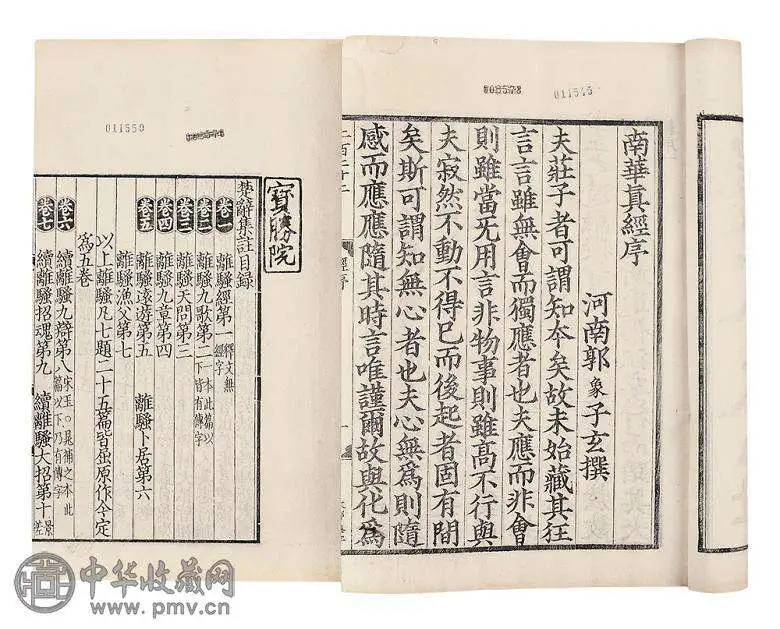 011545
南華真經序
河南郭象子玄撰
夫莊子者可謂知本矣故未始藏其狂
言言雖無會而獨應者也夫應而非會
則雖當无用言非物事則雖高不行與
夫寂然不動不得已而後起者固有間
矣斯可謂知無心者也夫心無為則隨
感而應應隨其時言唯謹爾故與化為
經序
011550
寶勝院
楚辭集註目録
卷一 離騷經第一 釋文無經字
卷二 離騷九歌第二 一本此篇以下皆有傳字
卷三 離騷天問第三
卷四 離騷九章第四
卷五 離騷遠遊第五 離騷卜居第六
離騷漁父第七
以上離騷凡七題二十五篇皆屈原作今定
為五卷
卷六 續離騷九辯第八 宋玉○晁補之本此篇以下乃有傳字
卷七 續離騷招魂第九 續離騷大招第十 景差
中华收藏网
www.pmv.cn